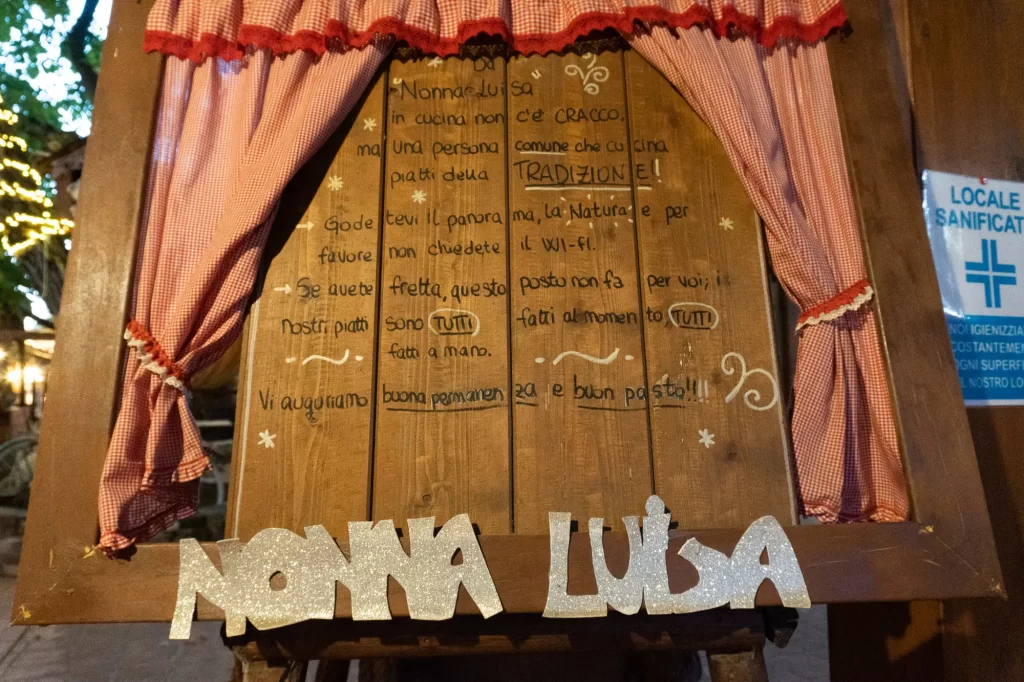 Da
Nonna Luisa
in cucina non c'è CRACCO.
ma una persona comune che cucina
piatti della TRADIZIONE!
→ Godetevi il panorama, la Natura e per
favore non chiedete il WI-FI.
→ Se avete fretta, questo posto non fa per voi; i
nostri piatti sono TUTTI fatti al momento, TUTTI
fatti a mano.
Vi auguriamo buona permanenza e buon pasto!!!!
NONNA LUISA
LOCALE
SANIFICAT
NOI IGIENIZZIA
COSTANTEMEN
OGNI SUPERFI
IL NOSTRO LO